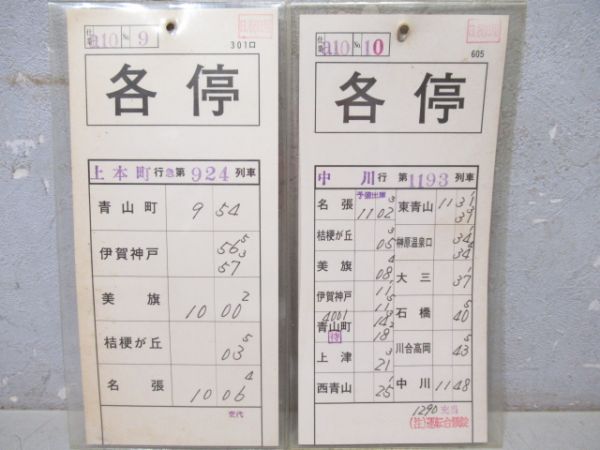 仕業 a10 No. 9
301口
各停
上本町 行 急 第 924 列車
青山町 9 54
伊賀神戸 56 5
57 3
美旗 10 00 2
桔梗が丘 03 5
名張 10 06 4
交代
仕業 a10 No. 10
605
各停
中川 行 第 1193 列車
予備出庫
名張 11 02 3
桔梗が丘 05 3
美旗 08 4
伊賀神戸 11 1
11 5
4001
青山町 14 3
待 18 2
上津 21 3
西青山 25 1
東青山 11 31 1
39
榊原温泉口 34 1
34 4
大三 37 1
石橋 40 5
川合高岡 43 5
中川 11 48
1290 充当
(注)運転台施錠